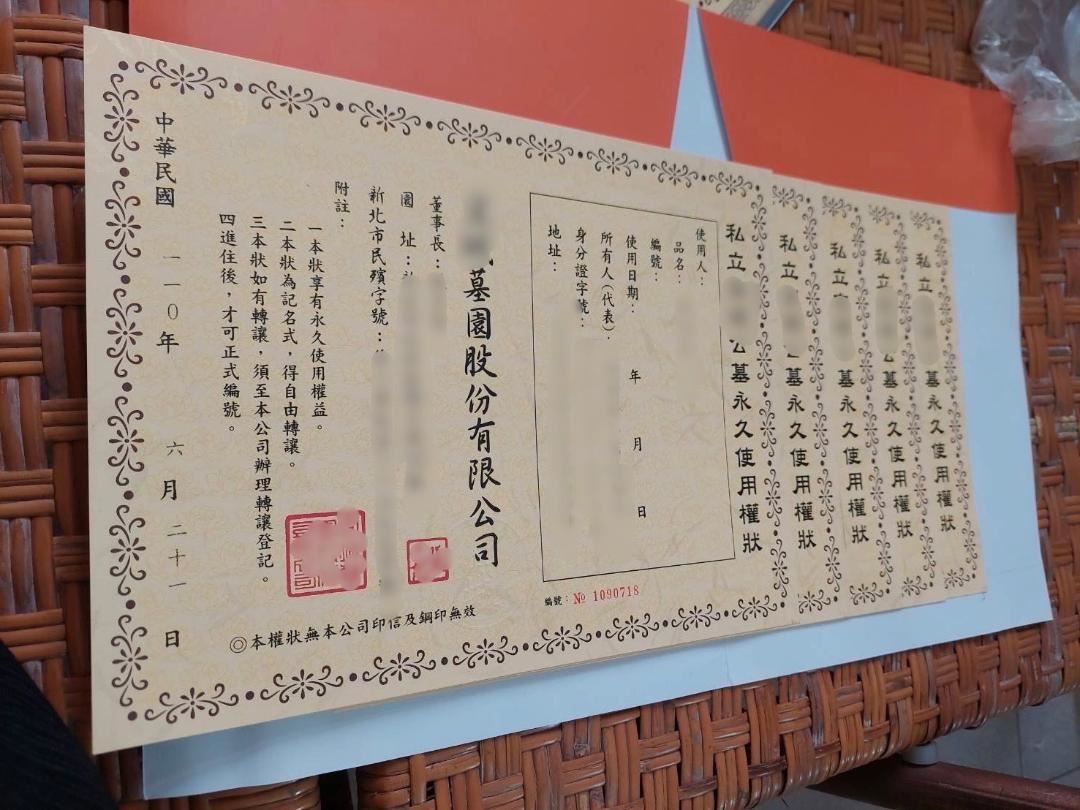 私立
公墓永久使用權狀
使用人：
品名：
編號：
使用日期： 年 月 日
所有人(代表)：
身分證字號：
地址：
編號：№ 1090718
墓園股份有限公司
董事長：
園 址：
新北市民殯字號：
附註：
一本狀享有永久使用權益。
二本狀為記名式，得自由轉讓。
三本狀如有轉讓，須至本公司辦理轉讓登記。
四進住後，才可正式編號。
中華民國 一一○年 六月 二十一日
◎本權狀無本公司印信及鋼印無效
私立
墓永久使用權狀
私立
墓永久使用權狀
私立
墓永久使用權狀
私立
墓永久使用權狀